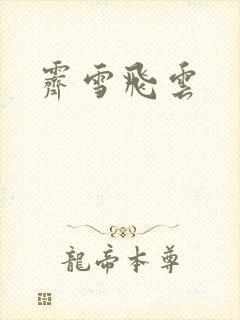 霽雪飛雲
龍帝本尊